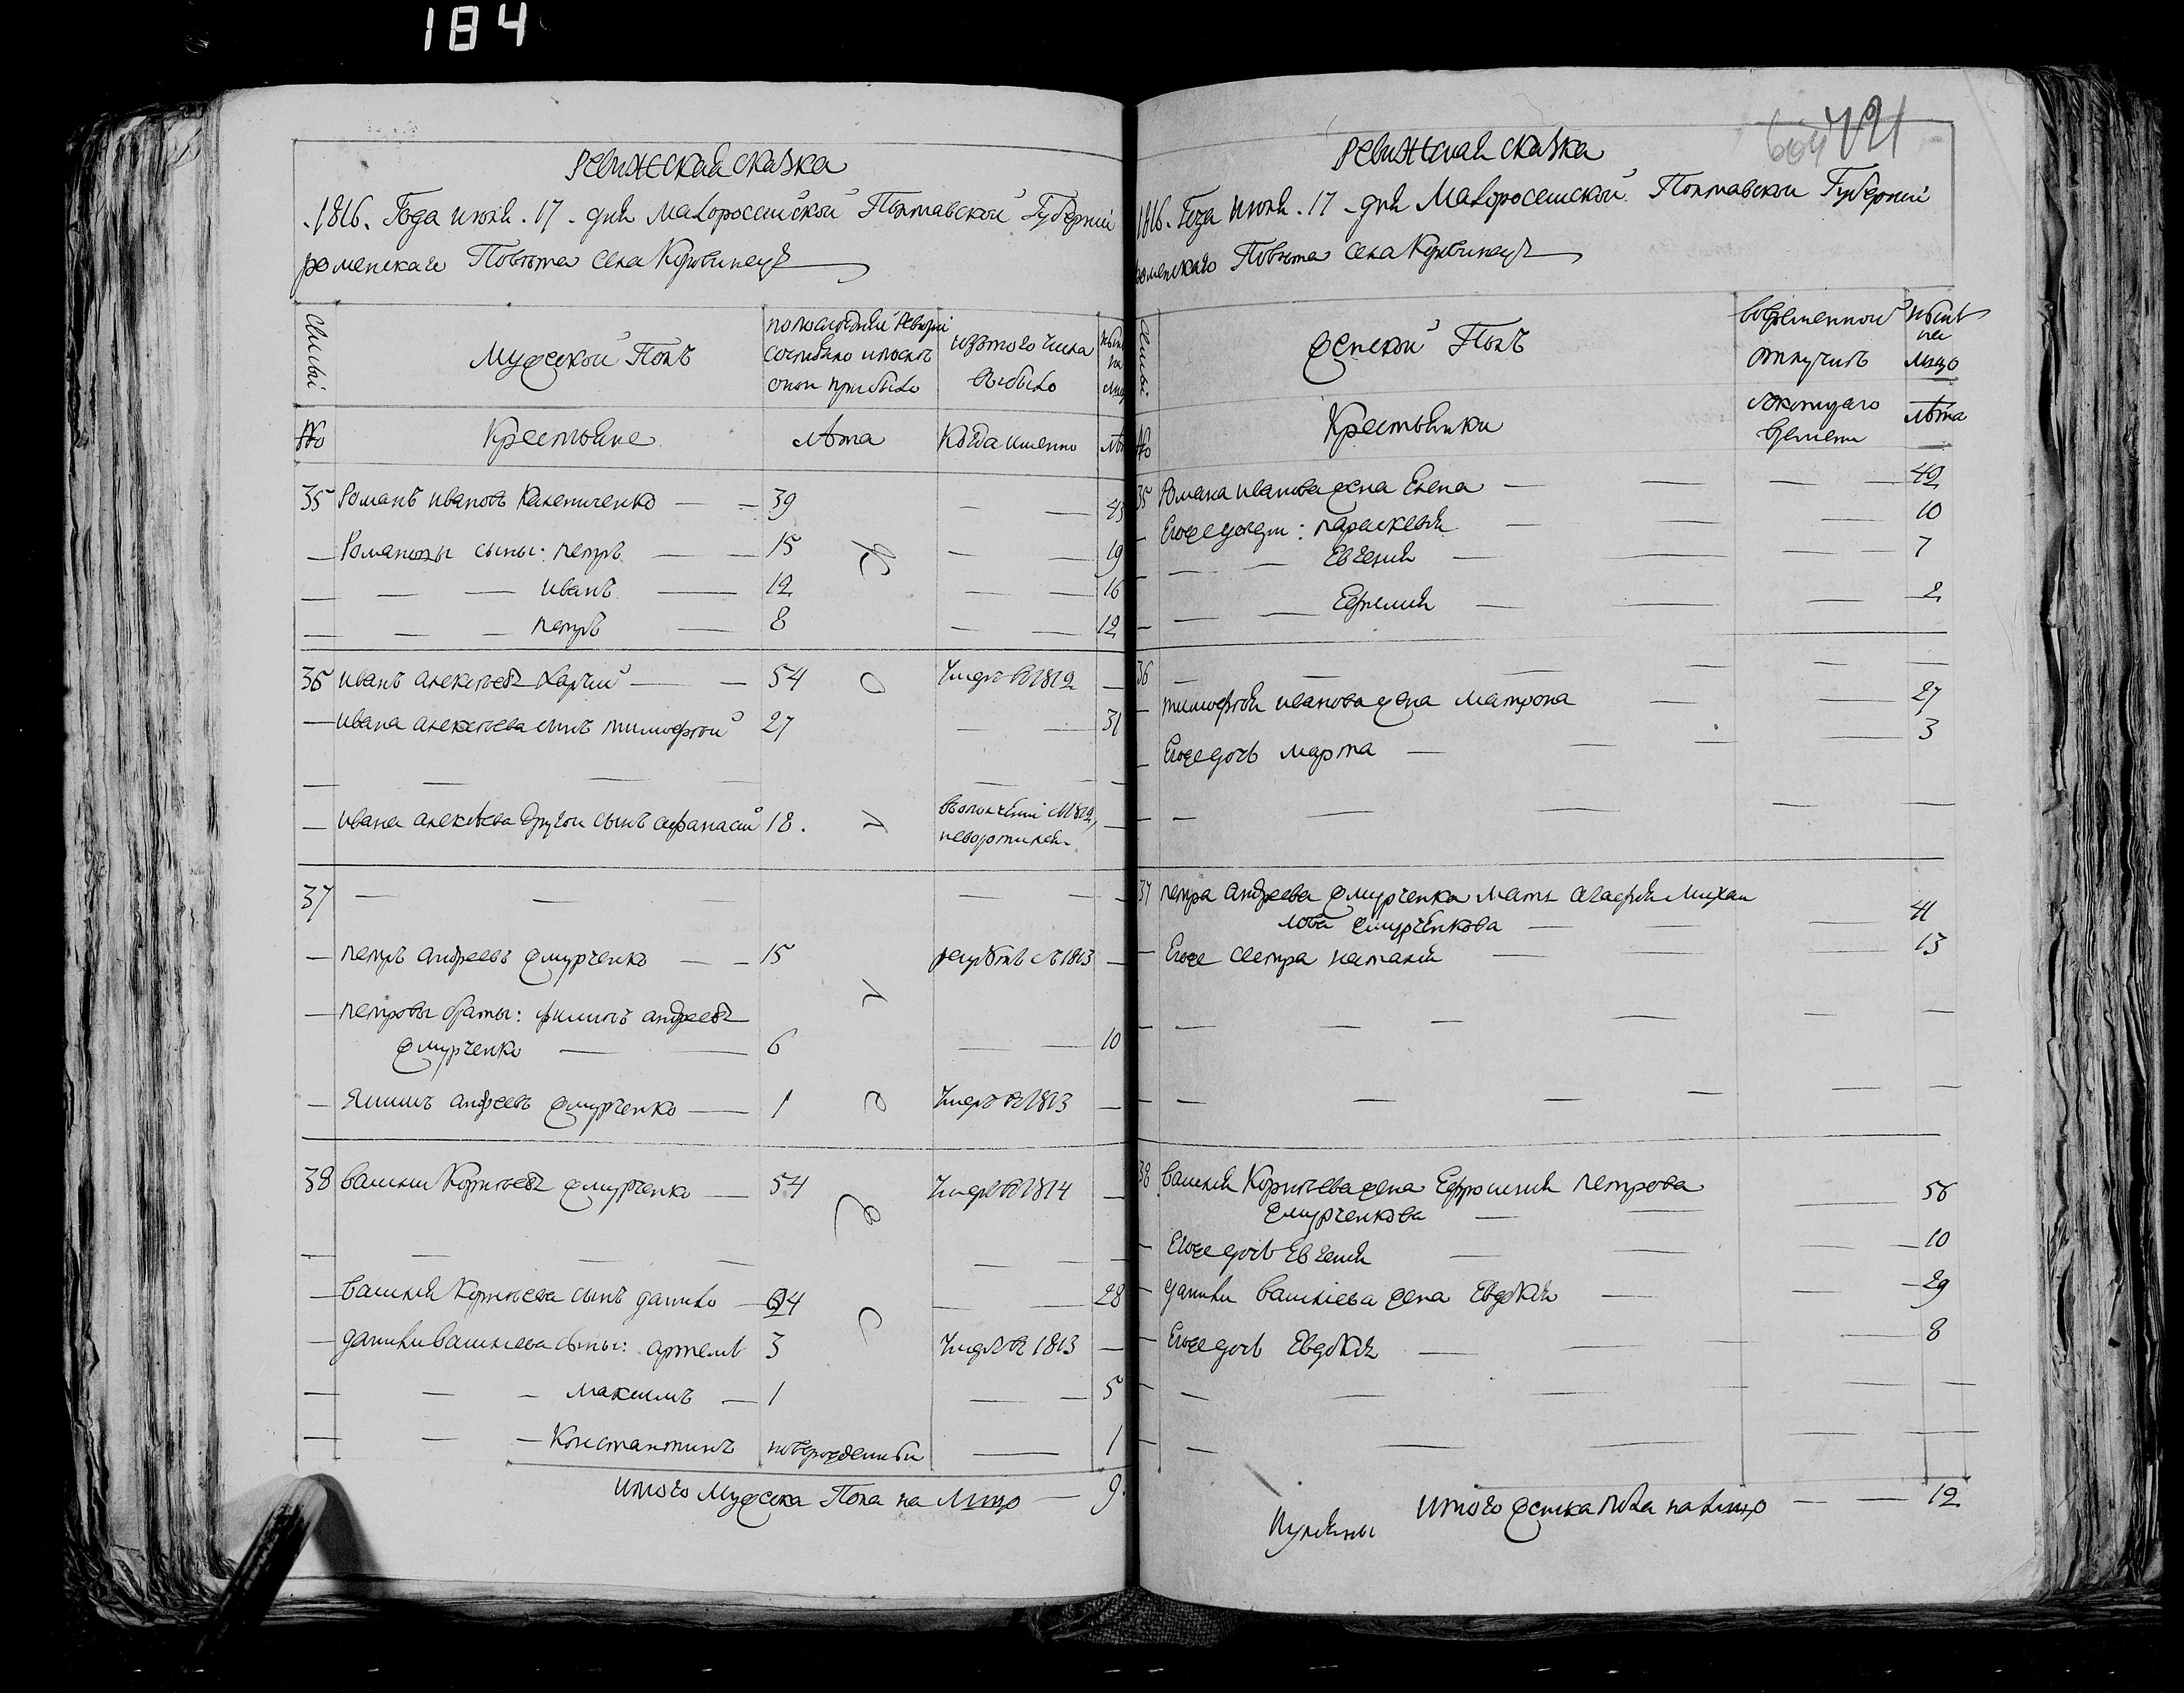 184
Ревижская сказка
1816. Года июня. 17. дня Малоросейской Полтавской Губернии
роменскаго Повѣта села Кривинецъ
Семьи
Мужской Полъ
по последней Ревизии состояло и после онои прибыло
изътого числа выбыло
ныне на лицо
№
Крестьяне
лѣта
Когда именно
лѣта
35 Романъ ивановъ Калениченко — — 39 — — 43
— Романовы сыны: петръ — — 15 — — 19
— — — иванъ — 12 — — 16
— — — петръ — 8 — — 12
36 иванъ алексѣевъ Харчий — — 54 Умеръ в 1812 —
— ивана алексѣева сынъ тимофѣй 27 — — 31
— — — — — — —
— ивана алексѣева другои сынъ афанасий 18. вополчении с 1812, —
невозвратился
37 — — — — —
— петръ андреевъ жмурченко — — 15 рекрутъ с 1813 —
— петровы браты: филипъ андреевъ
жмурченко — — 6 — — 10
— андреевъ жмурченко — 1 Умеръ в 1813 —
38 василий Корнѣевъ жмурченко — 54 Умеръ в 1814 —
— — — — — — —
— василия Корнѣева сынъ данило — 24 — — 28
— данилы василиева сыны: артемъ 3 Умеръ в 1813 —
— — — максимъ — 1 — — 5
— — — Константинъ новорожденный — 1
итого мужеска Пола на лицо — 9.
604 721
Ревижская сказка
1816. Года июня. 17. дня Малоросейской Полтавской Губернии
роменскаго Повѣта села Кривинецъ
Семьи
Женской Полъ
вовременной отлучкѣ
ныне на лицо
№
Крестьянки
съкотораго времени
лѣта
35 Романа иванова жена Елена — — — — 42
— Егоже дочери: параскевия — — — 10
— — — Евгения — — — — 7
— — — Ефимия — — — 2
36 — — — — —
— тимофѣя иванова жена матрона — — 27
— Егоже дочь марта — — — — 3
— — — — — —
37 петра андреева жмурченка мать агафия михаи
лова жмурченкова — — — 41
— Егоже сестра наталия — — — 13
— — — — — — —
— — — — — — —
38 василия Корнѣева жена Ефросиния петрова
жмурченкова — — — 56
— Егоже дочь Евгения — — — — 10
— данилы василиева жена Евдокия — — — 29
— Егоже дочь Евдокия — — — — 8
— — — — — — —
— — — — — — —
итого женска пола на лицо — — 12